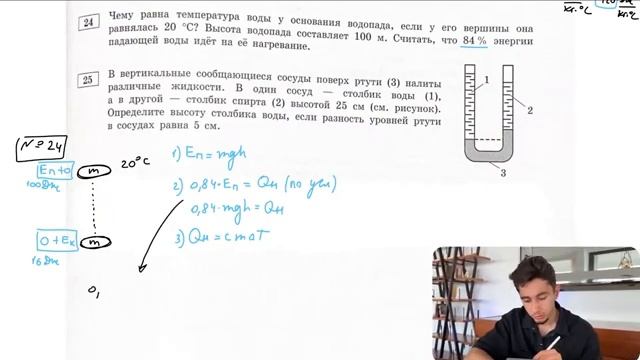 кг.°С
кг.°С
24 Чему равна температура воды у основания водопада, если у его вершины она
равнялась 20 °С? Высота водопада составляет 100 м. Считать, что 84 % энергии
падающей воды идёт на её нагревание.
25 В вертикальные сообщающиеся сосуды поверх ртути (3) налиты
различные жидкости. В один сосуд — столбик воды (1),
а в другой — столбик спирта (2) высотой 25 см (см. рисунок).
Определите высоту столбика воды, если разность уровней ртути
в сосудах равна 5 см.
1
2
3
№24
Eп+0
100Дж
m
20°С
0+Eк
16Дж
m
0,
1) Eп = mgh
2) 0,84·Eп = Qн (по усл)
0,84·mgh = Qн
3) Qн = cm∆T